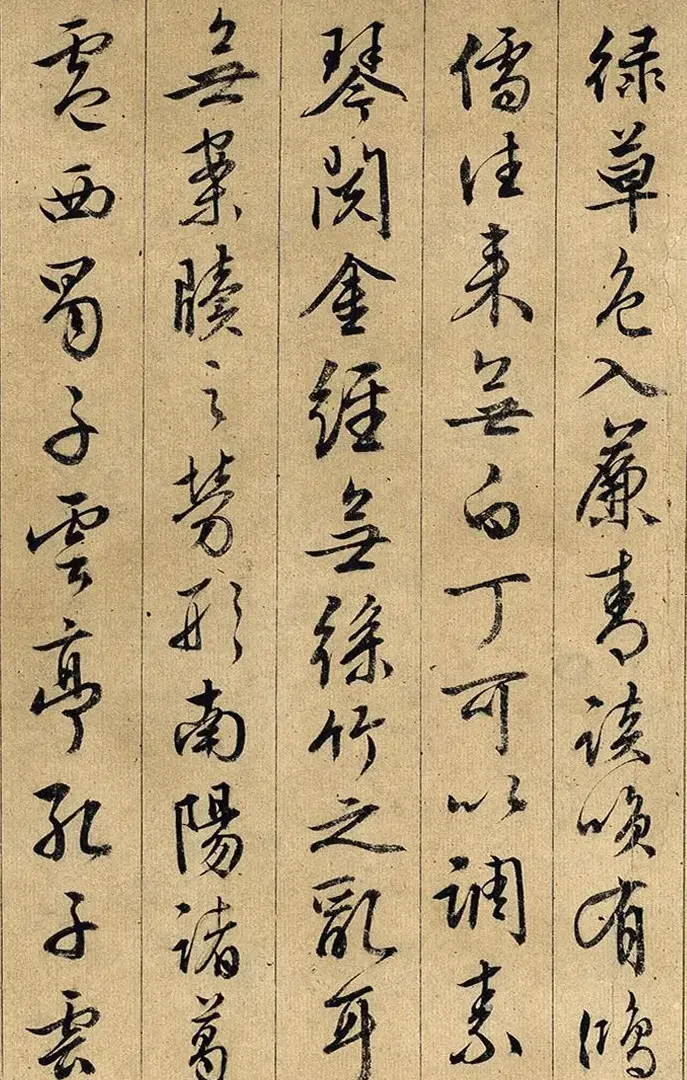 绿草色入簾青談唤有鴻
儒往来無白丁可以調素
琴閱金經無絲竹之亂耳
無案牘之勞形南陽諸葛
廬西蜀子雲亭孔子雲